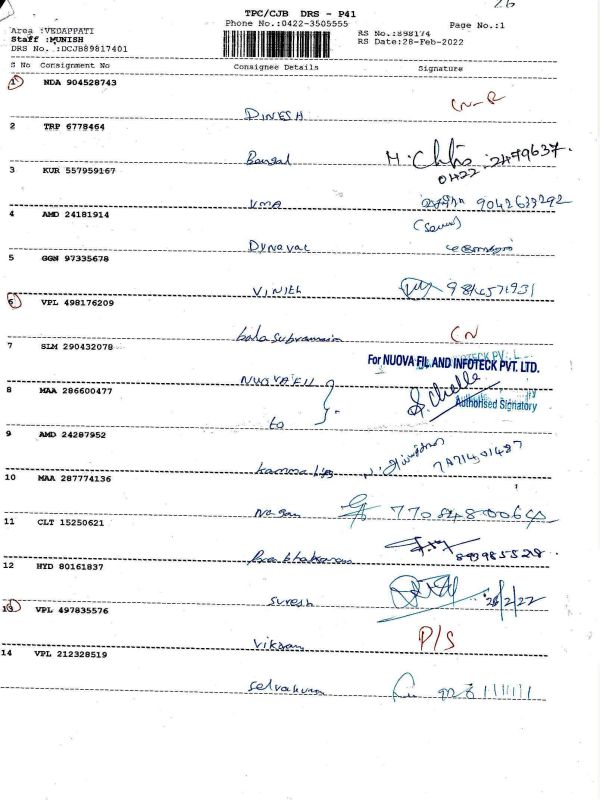 26
TPC/CJB DRS - P41
Area :VEDAPPATI
Phone No.:0422-3505555
Page No.:1
Staff :MUNISH
RS No.:898174
DRS No.:DCJB89817401
RS Date:28-Feb-2022
S No Consignment No Consignee Details Signature
1 NDA 904528743
DINESH CN-R
2 TRP 6778464
Bansal
0422-2479637.
3 KUR 557959167
UMA 9042633292
4 AMD 24181914
Dynavac
5 GGN 97335678
VINITH
6 VPL 498176209
bala subramain CN
7 SLM 290432078
For NUOVA FIL AND INFOTECK PVT. LTD.
NUOVA FIL
8 MAA 286600477
Authorised Signatory
to
9 AMD 24287952
10 MAA 287774136
Nagan
11 CLT 15250621
Prabhakaran
12 HYD 80161837
Suresh 28/2/22
13 VPL 497835576
Vikram P/S
14 VPL 212328519
Selvakum